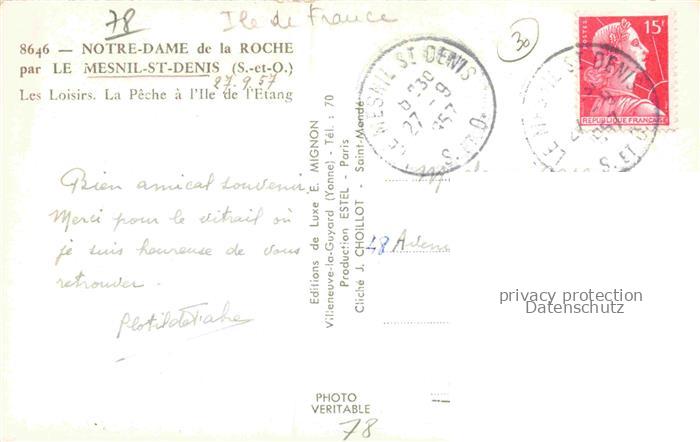 78
Ile de France
30
8646 — NOTRE-DAME de la ROCHE
par LE MESNIL-ST-DENIS (S.-et-O.)
27.9.57
Les Loisirs. La Pêche à l'Ile de l'Etang
LE MESNIL ST DENIS
27 - 9
S. ET O.
POSTES
15F
REPUBLIQUE FRANÇAISE
LE MESNIL ST DENIS
S. ET O.
Bien amical souvenir
Merci pour le vitrail où
je suis heureuse de vous
retrouver.
Editions de Luxe E. MIGNON
Villeneuve-la-Guyard (Yonne) - Tél. : 70
Production ESTEL - Paris
Cliché J. CHOILLOT - Saint-Mandé
privacy protection
Datenschutz
PHOTO
VERITABLE
78